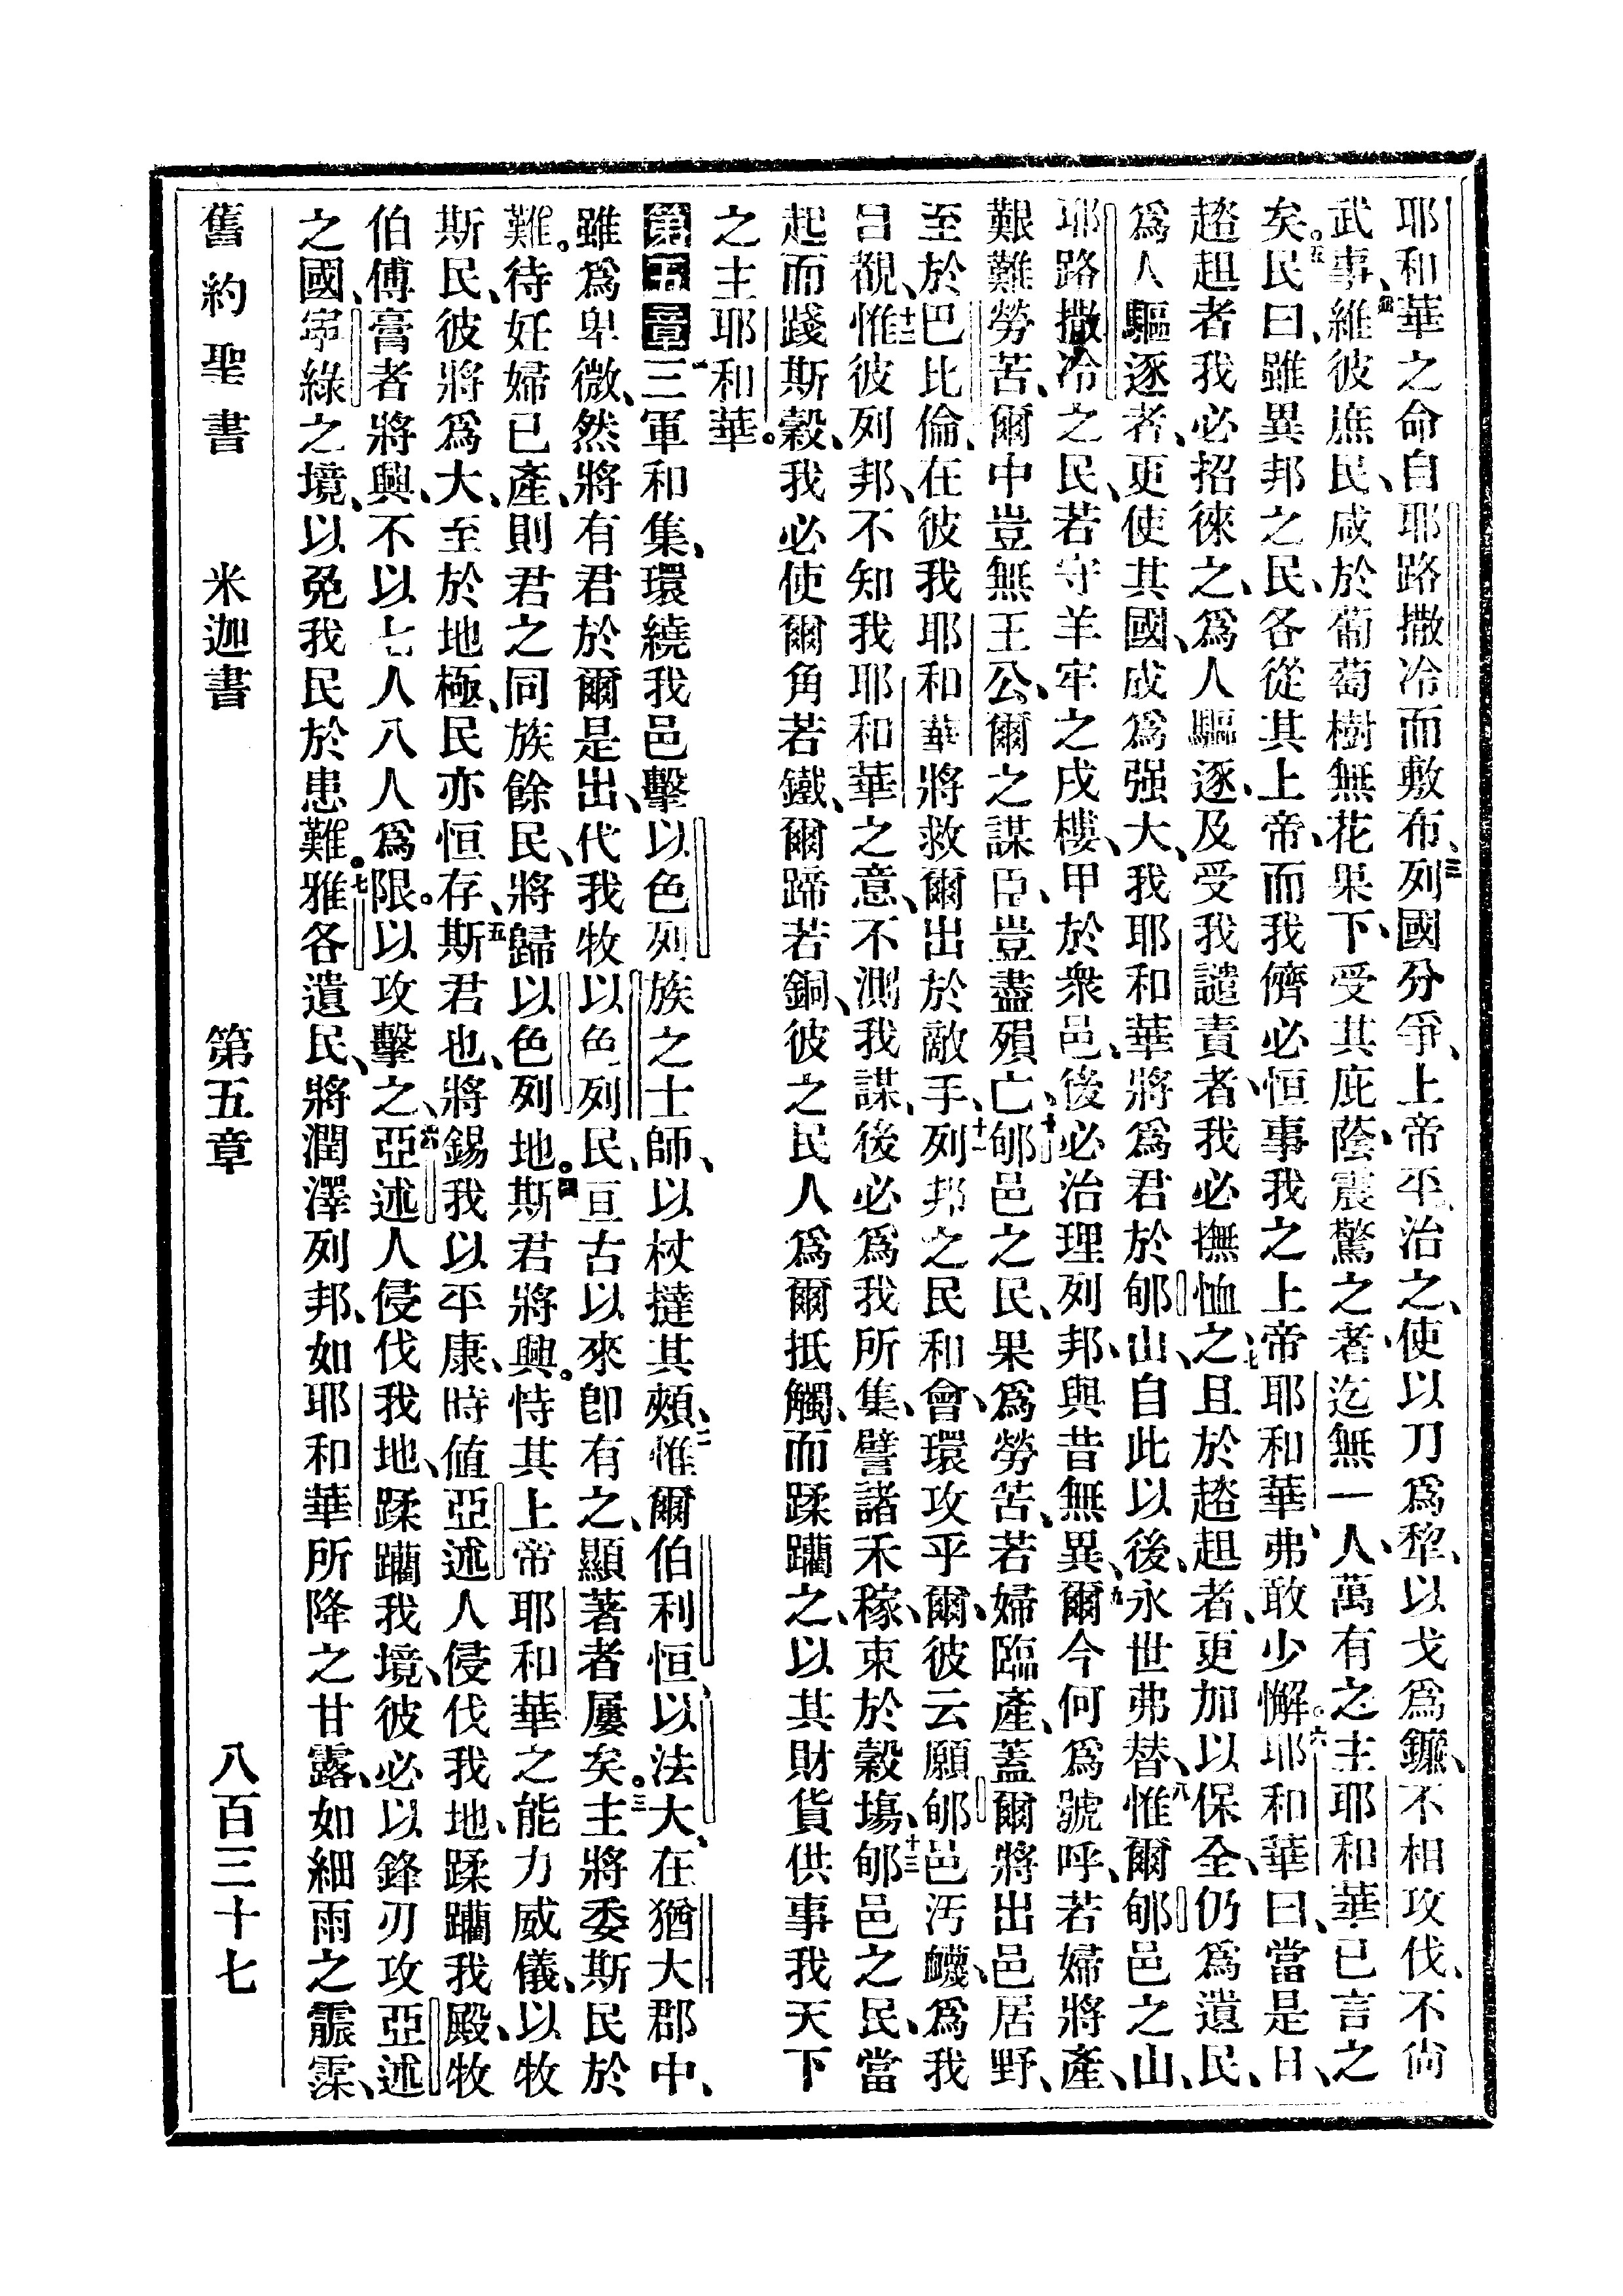 耶和華之命自耶路撒冷而敷布、三列國分爭、上帝平治之、使以刀爲犂、以戈爲鐮、不相攻伐、不尙
武事、四維彼庶民、咸於葡萄樹無花果下、受其庇蔭、震驚之者、迄無一人、萬有之主耶和華、已言之
矣。五民曰、雖異邦之民、各從其上帝、而我儕必恒事我之上帝耶和華、弗敢少懈。六耶和華曰、當是日、
趦趄者我必招徠之、爲人驅逐、及受我譴責者、我必撫恤之、七且於趦趄者、更加以保全、仍爲遺民、
爲人驅逐者、更使其國、成爲强大、我耶和華將爲君於郇山、自此以後、永世弗替、八惟爾郇邑之山、
耶路撒冷之民、若守羊牢之戌樓、甲於衆邑、後必治理列邦、與昔無異、九爾今何爲號呼、若婦將產、
艱難勞苦、爾中豈無王公、爾之謀臣、豈盡殞亡、十郇邑之民、果爲勞苦、若婦臨產、蓋爾將出邑居野、
至於巴比倫、在彼我耶和華將救爾出於敵手、十一列邦之民和會、環攻乎爾、彼云願郇邑汚衊、爲我
目覩、十二惟彼列邦、不知我耶和華之意、不測我謀、後必爲我所集、譬諸禾稼、束於穀塲、十三郇邑之民、當
起而踐斯穀、我必使爾角若鐵、爾蹄若銅、彼之民人爲爾抵觸、而蹂躪之、以其財貨供事我天下
之主耶和華。
第五章一三軍和集、環繞我邑、擊以色列族之士師、以杖撻其頰、二惟爾伯利恒以法大、在猶大郡中、
雖爲卑微、然將有君於爾是出、代我牧以色列民、亘古以來卽有之、顯著者屢矣。三主將委斯民於
難。待妊婦已產、則君之同族餘民、將歸以色列地。四斯君將興。恃其上帝耶和華之能力威儀、以牧
斯民、彼將爲大、至於地極、民亦恒存、五斯君也、將錫我以平康、時値亞述人侵伐我地、蹂躪我殿、牧
伯傅膏者將興、不以七人八人爲限。以攻擊之、六亞述人侵伐我地、蹂躪我境、彼必以鋒刃攻亞述
之國、寧綠之境、以免我民於患難。七雅各遺民、將潤澤列邦、如耶和華所降之甘露、如細雨之霢霂、
舊約聖書 米迦書 第五章 八百三十七